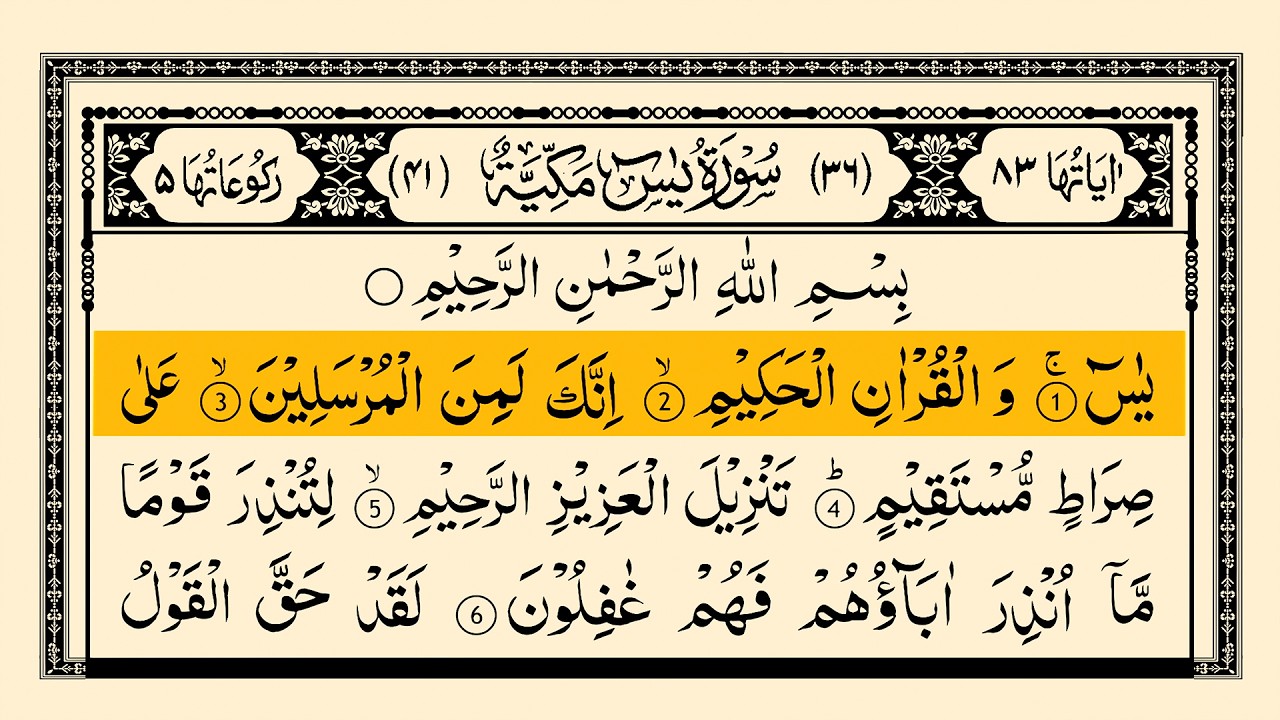 اٰیَاتُهَا ۸۳ (۳۶) سُوْرَةُ یٰسٓ مَكِّیَّةٌ (۴۱) رُكُوْعَاتُهَا ۵
بِسْمِ اللّٰهِ الرَّحْمٰنِ الرَّحِیْمِ ○
یٰسٓ ۚ ① وَ الْقُرْاٰنِ الْحَكِیْمِ ۙ ② اِنَّكَ لَمِنَ الْمُرْسَلِیْنَ ۙ ③ عَلٰى
صِرَاطٍ مُّسْتَقِیْمٍ ؕ ④ تَنْزِیْلَ الْعَزِیْزِ الرَّحِیْمِ ۙ ⑤ لِتُنْذِرَ قَوْمًا
مَّاۤ اُنْذِرَ اٰبَآؤُهُمْ فَهُمْ غٰفِلُوْنَ ⑥ لَقَدْ حَقَّ الْقَوْلُ